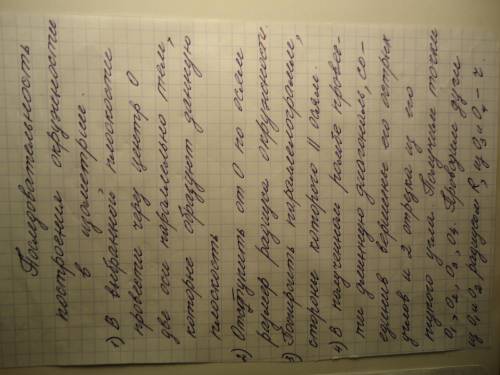 Последовательность
построения окружности
в изометрии.
1) В выбранной плоскости
провести через центр О
две оси параллельно тем,
которые образуют данную
плоскость
2) Отступить от О по осям
размер радиуса окружности.
3) Построить параллелограмм,
стороны которого || осям.
4) В полученном ромбе прове-
сти длинную диагональ, со-
единив вершины его острых
углов и 2 отрезка из его
тупого угла. Получим точки
О1, О2, О3, О4. Проводим дуги
из О1 и О2 радиусом R, из О3 и О4 - r.